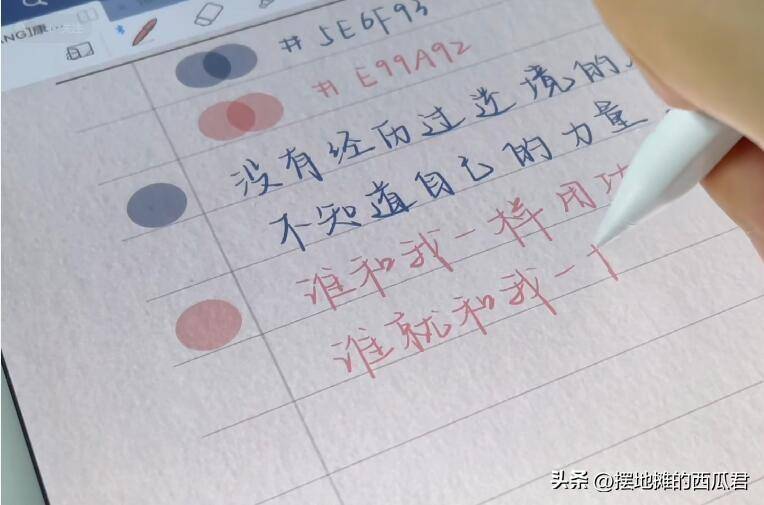 NG]康
# 5E6F93
# E99A92
没有经历过逆境的
不知道自己的力量
谁和我一样用功
谁就和我一
头条 @摆地摊的西瓜君